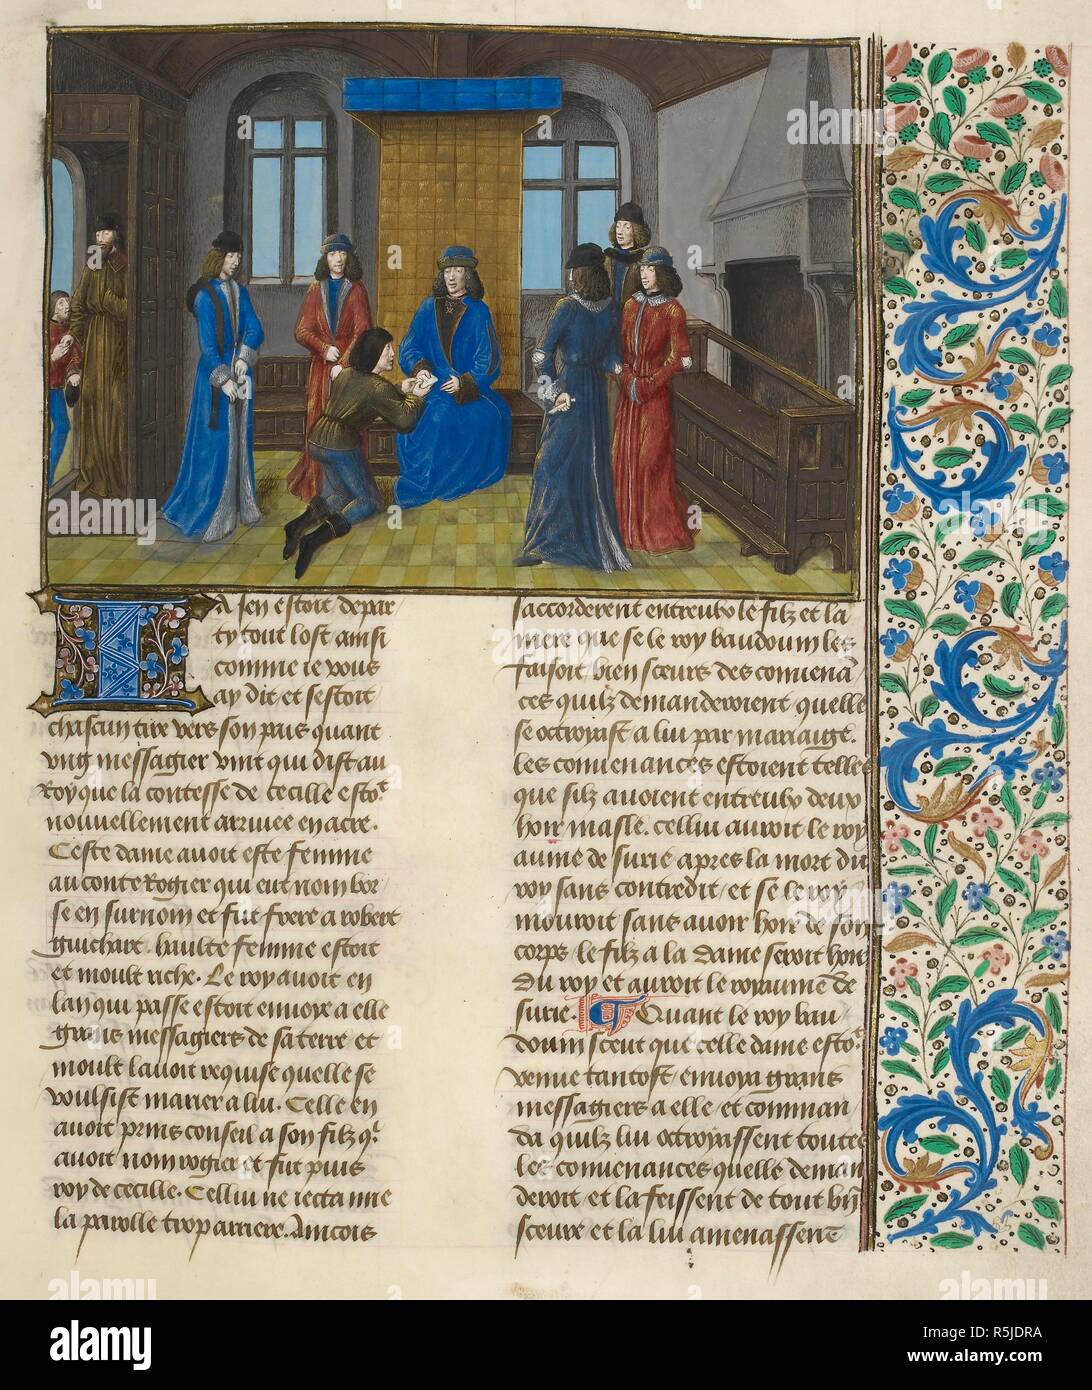 A sen estoit depar
ty tout lost ainsi
comme ie vous
ay dit et sestoit
chascun tire vers son pais quant
vng messagier vint qui dist au
Roy que la contesse de cecille esto.t
nouuellement arriuee en acre.
Ceste dame auoit este femme
au conte Rogier qui eut nom bor
se en surnom et fut frere a robert
guichart. haulte femme estoit
et moult riche. Le roy auoit en
lan qui passe estoit enuoye a elle
grans messagiers de sa terre et
moult lauoit requise quelle se
voulsist marier a lui. Celle en
auoit prins conseil a son filz q̄
auoit nom rogier et fut puis
roy de cecille. Cellui ne iecta mie
la parolle trop arriere. Aincois
saccorderent entreulx le filz et la
mere que se le roy baudouin les
faisoit bien sceurs des conuenā
ces quilz demanderoient quelle
se octroyast a lui par mariaige.
Les conuenances estoient telles
que silz auoient entreulx deux
hoir masle. cellui auroit le roy
aume de surie apres la mort du
roy sans contredit, et se le roy
mouroit sans auoir hoir de son
corps le filz a la dame seroit hoir
du roy et auroit le royaume de
surie. Quant le roy bau
douin sceut que celle dame esto.t
venue tantost, enuoya grans
messagiers a elle et comman
da quilz lui octroyassent toutes
les conuenances quelle deman
deroit et la feissent de tout biē
sceure et la lui amenassent
alamy
Image ID: R5JDRA
www.alamy.com